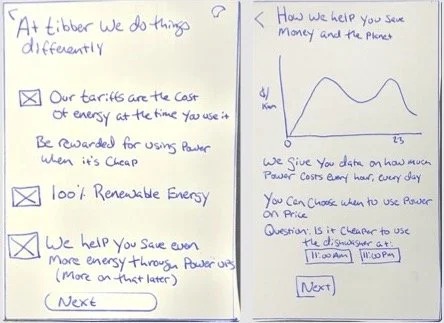 At tibber we do things
differently
Our tariffs are the cost
of energy at the time you use it
Be rewarded for using Power
when it's cheap
100% Renewable Energy
We help you save even
more energy through Power ups
(More on that later)
Next
How we help you save
Money and the Planet
$/
Kwh
0
23
We give you data on how much
Power costs every hour, every day
You can choose when to use Power
on Price
Question: Is it cheaper to use
the dishwasher at:
11:00Am 11:00Pm
Next